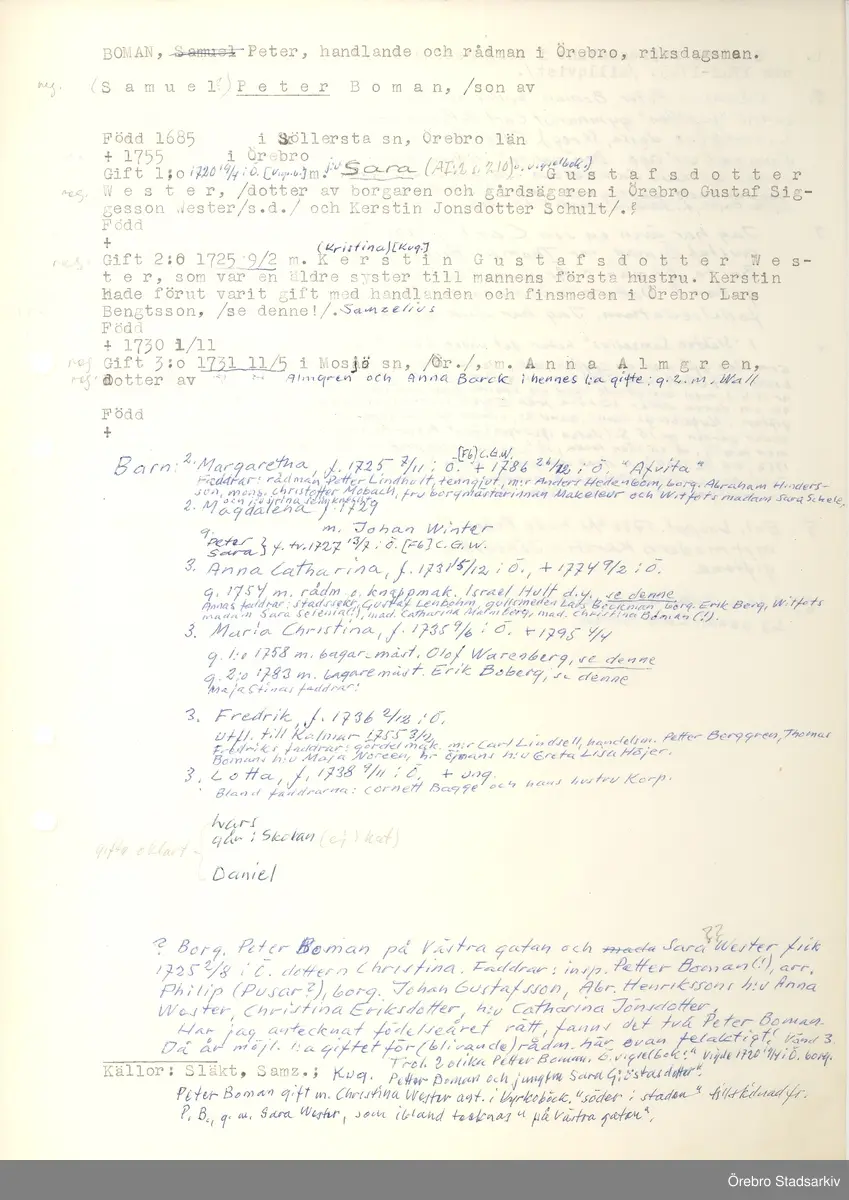 BOMAN, Samuel Peter, handlande och rådman i Örebro, riksdagsman.
reg. (Samuel) Peter Boman, /son av
Född 1685 i Söllersta sn, Örebro län
+ 1755 i Örebro
Gift 1:o 1720 19/4 i Ö. [V.q.b.] m. jfr Sara (AI:2 s. 210) o. vigselbok.) Gustafsdotter
reg. Wester, /dotter av borgaren och gårdsägaren i Örebro Gustaf Sig-
gesson Wester/s.d./ och Kerstin Jonsdotter Schult/.
Född
+
(Kristina) [Kvg.]
reg. Gift 2:o 1725 9/2 m. Kerstin Gustafsdotter Wes-
ter, som var en äldre syster till mannens första hustru. Kerstin
hade förut varit gift med handlanden och finsmeden i Örebro Lars
Bengtsson, /se denne!/. Samzelius
Född
+ 1730 1/11
reg Gift 3:o 1731 11/5 i Mosjö sn, /Ör./, m. Anna Almgren,
reg. dotter av Almgren och Anna Barck i hennes 1:a gifte; g. 2. m. Wall
Född
+
Barn: 2. Margaretha, f. 1725 7/11 i Ö. [F6] C.G.W. + 1786 26/12 i Ö. "Afvita"
Faddrar: rådman Petter Lindhult, tenngjut. m:r Anders Hedenbom, borg. Abraham Hinders-
son, mons. Christoffer Mobach, fru borgmästarinnan Makeleur och Witfots madam Sara Schele,
2. Magdalena f. 1729
m. Johan Winter
g. Peter
Sara } f. tv. 1727 13/7 i Ö. [F6] C.G.W.
3. Anna Catharina, f. 1731 15/12 i Ö., + 1774 9/2 i Ö.
g. 1754 m. rådm o. knappmak. Israel Hult d.y. se denne
Annas faddrar: stadssekr. Gustaf Lenbohm, gullsmeden Lars Beckman, borg. Erik Berg, Witfots
madam Sara Selenia(!), mad. Catharina Malmberg, mad. Christina Boman(!).
3. Maria Christina, f. 1735 9/6 i Ö. + 1795 4/4
g. 1:o 1758 m. bagaremäst. Olof Warenberg, se denne
g. 2:o 1783 m. bagaremäst. Erik Boberg, se denne
Maja Stinas faddrar:
3. Fredrik, f. 1736 2/12 i Ö.
utfl. till Kalmar 1755 3/12
Fredriks faddrar: gördelmak. m:r Carl Lindsell, handelsm. Petter Berggren, Thomas
Bomans h:u Maja Noreen, hr Öjmans h:u Greta Lisa Höjer.
3. Lotta, f. 1738 9/11 i Ö. + ung.
Bland faddrarna: cornett Bagge och hans hustru Korp.
Lars
går i Skolan (ej i kat)
gifte oklart
Daniel
? Borg. Peter Boman på Västra gatan och mada Sara ?? Wester fick
1725 2/8 i Ö. dottern Christina. Faddrar: insp. Petter Boman(!), arr.
Philip (Pusar?), borg. Johan Gustafsson, Abr. Henrikssons h:u Anna
Wester, Christina Eriksdotter, h:u Catharina Jönsdotter.
Har jag antecknat födelseåret rätt, fanns det två Peter Boman.
Då är möjl. 1:a giftet för (blivande) rådm. här ovan felaktigt! Vänd 3.
Trol. 2 olika Petter Boman. Ö. vigselbok: "Vigde 1720 19/4 i Ö. borg.
Källor: Släkt, Samz.; Kvg. Petter Boman och jungfru Sara Göstasdotter".
Peter Boman gift m. Christina Wester ant. i Kyrkobok. "söder i staden" till skillnad fr.
P. B., g. m. Sara Wester, som ibland tecknas "på Västra gatan".
Örebro Stadsarkiv